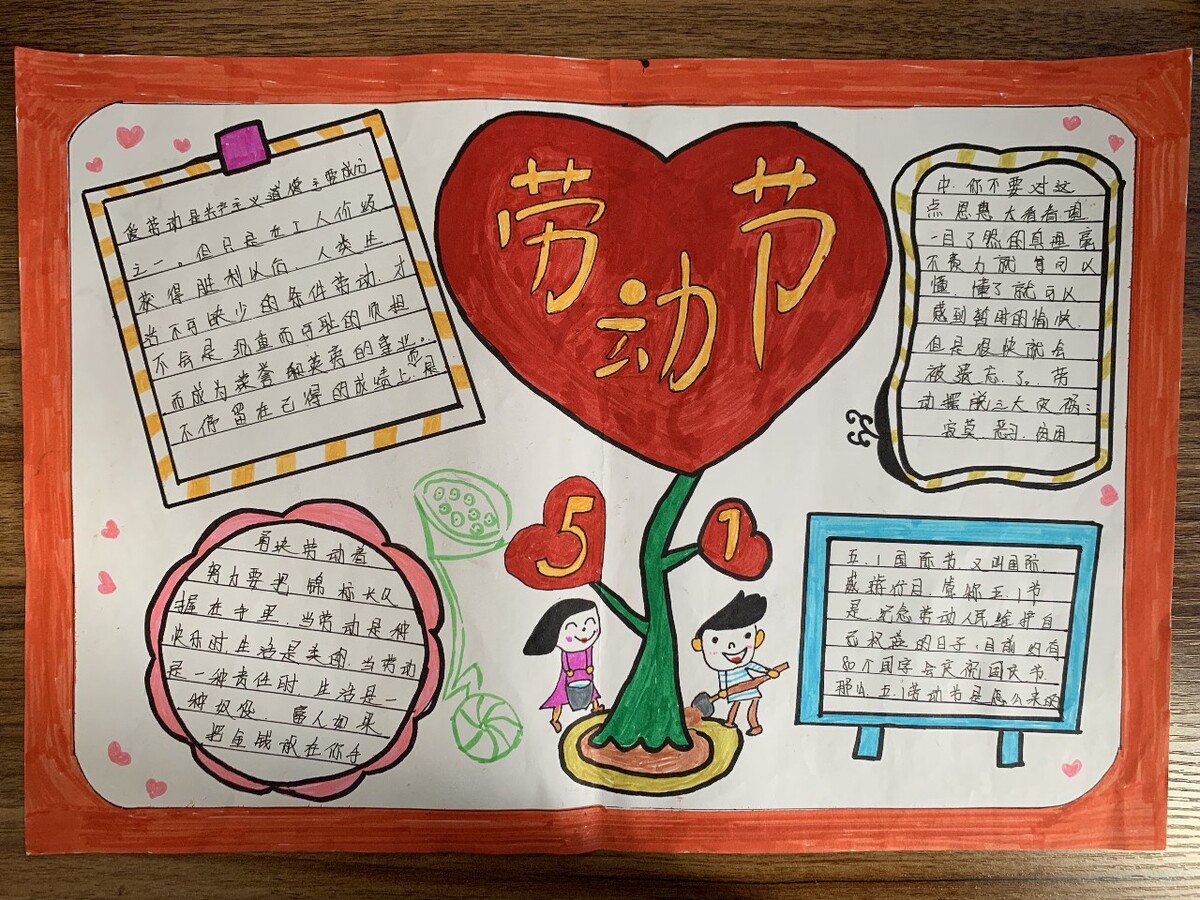 劳动节
爱劳动是共产主义道德主要成分
之一。但只是在工人阶级
获得胜利以后，人类生
活不可缺少的条件劳动，才
不会是沉重而可耻的
而成为荣誉和英勇的事业。
不停留在已得的成绩上，是
中，你不要对这
点恩惠太看
一目了然的真理毫
不费力就可以
懂，懂了就可以
感到暂时的愉快，
但是很快就会
被遗忘了。劳
动摆脱三大灾祸：
寂莫、恶习、贫困
5 1
劳动者
努力要把锦标长久
握在手里，当劳动是种
快乐时，生活是美的，当劳动
是一种责任时，生活是一
种奴役。富人如果
把金钱放在你手
五.1国际节又叫国际
或游行日，常称五.1节
是纪念劳动人民维护自
己权益的日子，目前约有
80个国家会庆祝国庆节
那么，五.1劳动节是怎么来的